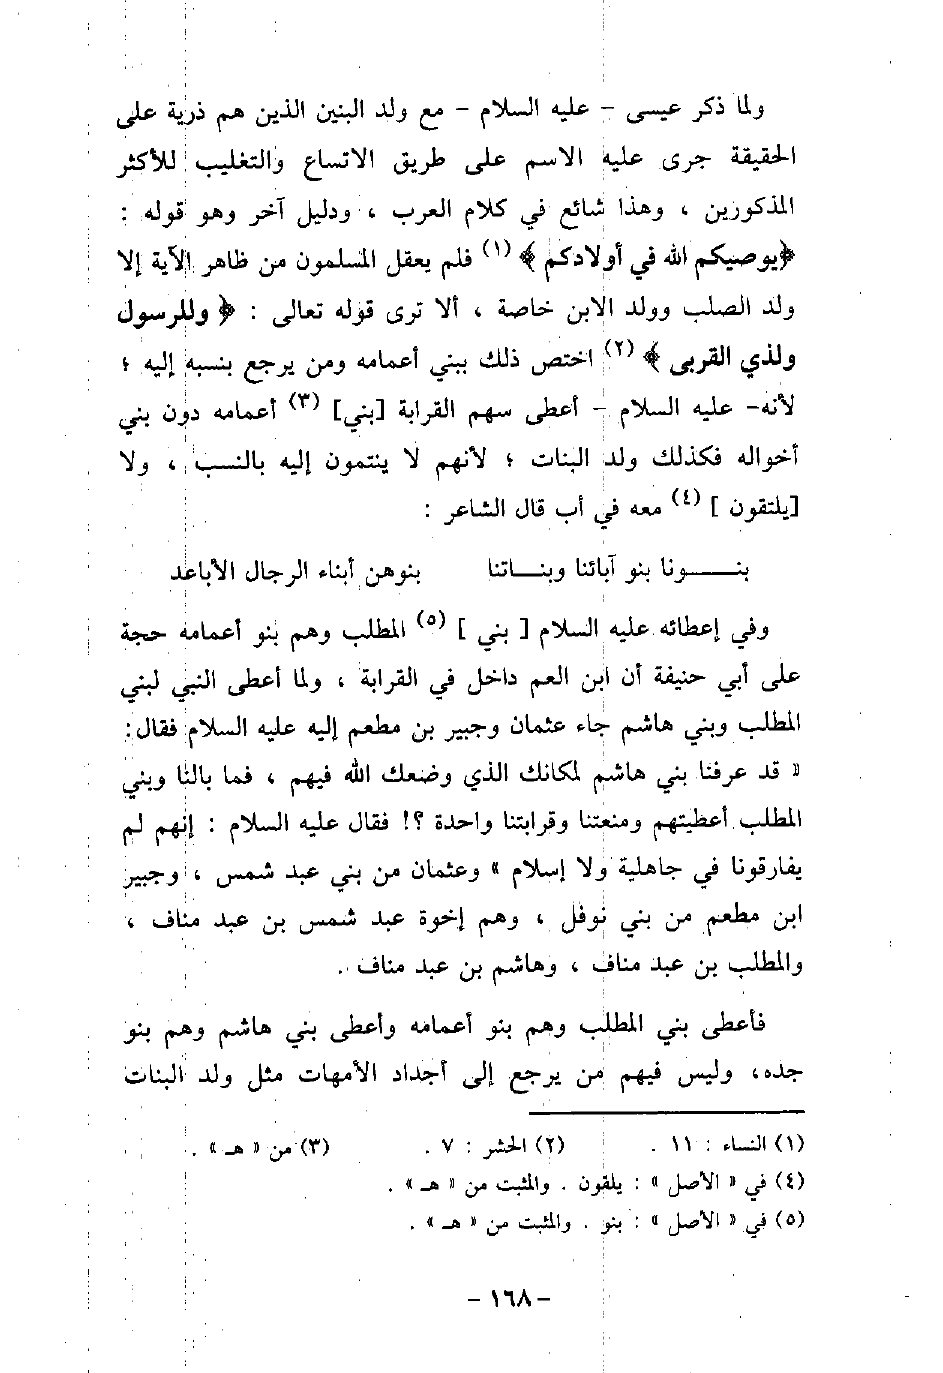 ولما ذكر عيسى – عليه السلام – مع ولد البنين الذين هم ذرية على
الحقيقة جرى عليه الاسم على طريق الاتساع والتغليب للأكثر
المذكورين ، وهذا شائع في كلام العرب ، ودليل آخر وهو قوله :
﴿يوصيكم الله في أولادكم﴾ (١) فلم يعقل المسلمون من ظاهر الآية إلا
ولد الصلب وولد الابن خاصة ، ألا ترى قوله تعالى : ﴿ وللرسول
ولذي القربى ﴾ (٢) اختص ذلك ببني أعمامه ومن يرجع بنسبه إليه ؛
لأنه– عليه السلام – أعطى سهم القرابة [بني] (٣) أعمامه دون بني
أخواله فكذلك ولد البنات ؛ لأنهم لا ينتمون إليه بالنسب ، ولا
[يلتقون ] (٤) معه في أب قال الشاعر :
بنـــــونا بنو آبائنا وبنـــاتنا بنوهن أبناء الرجال الأباعد
وفي إعطائه عليه السلام [ بني ] (٥) المطلب وهم بنو أعمامه حجة
على أبي حنيفة أن ابن العم داخل في القرابة ، ولما أعطى النبي لبني
المطلب وبني هاشم جاء عثمان وجبير بن مطعم إليه عليه السلام فقال:
« قد عرفنا بني هاشم لمكانك الذي وضعك الله فيهم ، فما بالنا وبني
المطلب أعطيتهم ومنعتنا وقرابتنا واحدة ؟! فقال عليه السلام : إنهم لم
يفارقونا في جاهلية ولا إسلام » وعثمان من بني عبد شمس ، وجبير
ابن مطعم من بني نوفل ، وهم إخوة عبد شمس بن عبد مناف ،
والمطلب بن عبد مناف ، وهاشم بن عبد مناف .
فأعطى بني المطلب وهم بنو أعمامه وأعطى بني هاشم وهم بنو
جده، وليس فيهم من يرجع إلى أجداد الأمهات مثل ولد البنات
(١) النساء : ١١ . (٢) الحشر : ٧ . (٣) من « هـ » .
(٤) في « الأصل » : يلقون . والمثبت من « هـ » .
(٥) في « الأصل » : بنو . والمثبت من « هـ » .
– ١٦٨ –